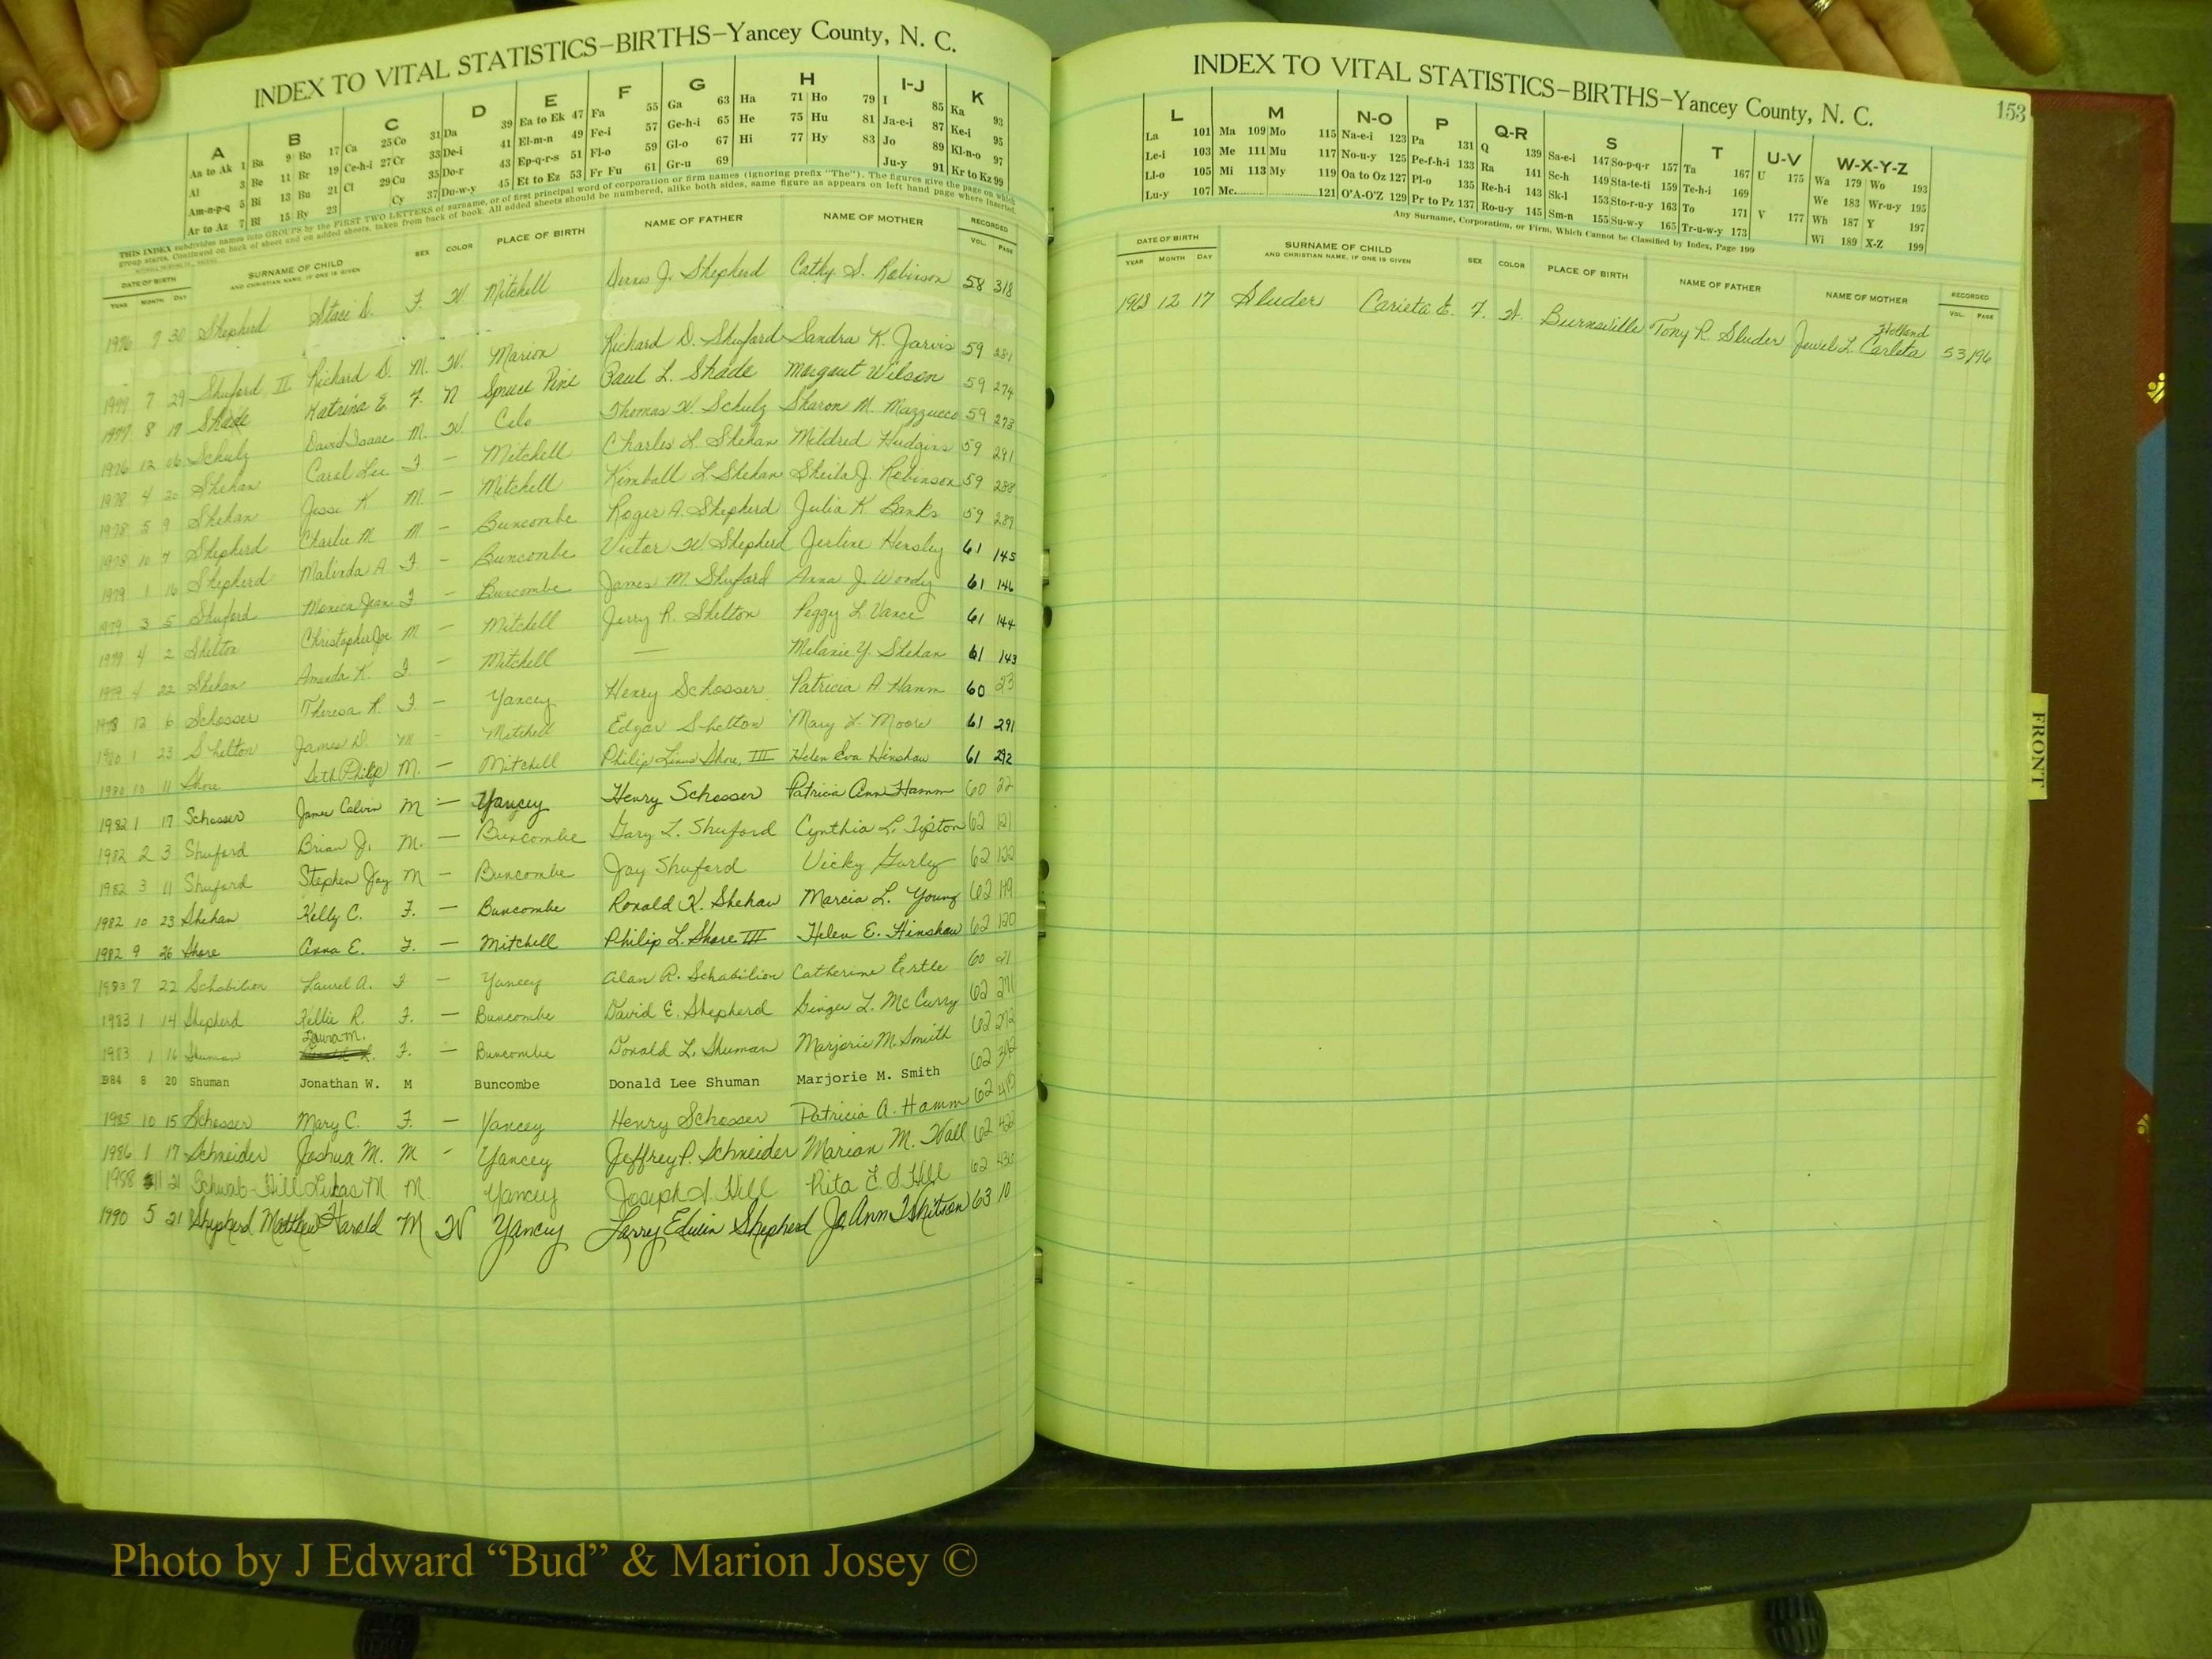 INDEX TO VITAL STATISTICS–BIRTHS–Yancey County, N. C.
A B C D E F G H I-J K
Aa to Ak 1 Ba 9 Bo 17 Ca 25 Co 31 Da 39 Ea to Ek 47 Fa 55 Ga 63 Ha 71 Ho 79 I 85 Ka 93
Al 3 Be 11 Br 19 Ce-h-i 27 Cr 33 De-i 41 El-m-n 49 Fe-i 57 Ge-h-i 65 He 75 Hu 81 Ja-e-i 87 Ke-i 95
Am-n-p-q 5 Bi 13 Bu 21 Cl 29 Cu 35 Do-r 43 Ep-q-r-s 51 Fl-o 59 Gl-o 67 Hi 77 Hy 83 Jo 89 Kl-n-o 97
Ar to Az 7 Bl 15 By 23 Cy 37 Du-w-y 45 Et to Ez 53 Fr Fu 61 Gr-u 69 Ju-y 91 Kr to Kz 99
THIS INDEX subdivides names into GROUPS by the FIRST TWO LETTERS of surname, or of first principal word of corporation or firm names (ignoring prefix "The"). The figures give the page on which
group starts. Continued on back of sheet and on added sheets, taken from back of book. All added sheets should be numbered, alike both sides, same figure as appears on left hand page where inserted.
DATE OF BIRTH SURNAME OF CHILD SEX COLOR PLACE OF BIRTH NAME OF FATHER NAME OF MOTHER RECORDED
YEAR MONTH DAY AND CHRISTIAN NAME, IF ONE IS GIVEN VOL. PAGE
1976 7 30 Shepherd Staci D. F. W. Mitchell Dennis J. Shepherd Cathy S. Robinson 58 318
1977 7 29 Shuford II Richard D. M. W. Marion Richard D. Shuford Sandra K. Jarvis 59 281
1977 8 17 Shade Katrina E. F. N Spruce Pine Paul L. Shade Margaut Wilson 59 274
1976 12 06 Schulz David Isaac M. W Celo Thomas W. Schulz Sharon M. Mazzucco 59 273
1978 4 20 Shehan Carol Lee F. — Mitchell Charles L. Shehan Mildred Hudgins 59 291
1978 5 9 Shehan Jessi K M. — Mitchell Kimball L. Shehan Sheila J. Robinson 59 288
1978 10 7 Shepherd Charlie M M — Buncombe Roger A. Shepherd Julia K Banks 59 289
1979 1 16 Shepherd Malinda A F — Buncombe Victor W Shepherd Jerline Hensley 61 145
1979 3 5 Shuford Monica Jean F — Buncombe James M. Shuford Anna J. Woody 61 146
1979 4 2 Shelton Christopher Joe M — Mitchell Jerry R. Shelton Peggy L. Vance 61 144
1979 4 22 Shehan Amanda K. F. — Mitchell — Melanie Y. Shehan 61 143
1978 12 6 Schosser Theresa R. F — Yancey Henry Schosser Patricia A. Hamm 60 23
1980 1 23 Shelton James D. M — Mitchell Edgar Shelton Mary L. Moore 61 291
1980 10 11 Shore Seth Philip M. — Mitchell Philip Linus Shore, III Helen Eva Hinshaw 61 292
1982 1 17 Schosser James Calvin M — Yancey Henry Schosser Patricia Ann Hamm 60 22
1982 2 3 Shuford Brian J. M. — Buncombe Gary L. Shuford Cynthia L. Tipton 62 121
1982 3 11 Shuford Stephen Jay M — Buncombe Jay Shuford Vicky Gurley 62 122
1982 10 23 Shehan Kelly C. F. — Buncombe Ronald K. Shehan Marcia L. Young 62 119
1982 9 26 Shore Anna E. F. — Mitchell Philip L. Shore III Helen E. Hinshaw 62 120
1983 7 22 Schabilion Laurel A. F — Yancey Alan R. Schabilion Catherine Ertle 60 21
1983 1 14 Shepherd Kellie R. F. — Buncombe David E. Shepherd Ginger L. McCurry 62 271
1983 1 16 Shuman Laura M. F. — Buncombe Donald L. Shuman Marjorie M. Smith 62 272
1984 8 20 Shuman Jonathan W. M Buncombe Donald Lee Shuman Marjorie M. Smith 62 392
1985 10 15 Schosser Mary C. F. — Yancey Henry Schosser Patricia A. Hamm 62
1986 1 17 Schneider Joshua M. M — Yancey Jeffrey P. Schneider Marian M. Wall 62 422
1988 11 21 Schwab-Hill Lukas M M Yancey Joseph S. Hill Rita E S Hill 62 430
1990 5 21 Shepherd Matthew Harold M W Yancey Larry Edwin Shepherd Jo Ann Whitson 63 10
INDEX TO VITAL STATISTICS–BIRTHS–Yancey County, N. C.
153
L M N-O P Q-R S T U-V W-X-Y-Z
La 101 Ma 109 Mo 115 Na-e-i 123 Pa 131 Q 139 Sa-e-i 147 So-p-q-r 157 Ta 167 U 175 Wa 179 Wo 193
Le-i 103 Me 111 Mu 117 No-u-y 125 Pe-f-h-i 133 Ra 141 Sc-h 149 Sta-te-ti 159 Te-h-i 169 We 183 Wr-u-y 195
Ll-o 105 Mi 113 My 119 Oa to Oz 127 Pl-o 135 Re-h-i 143 Sk-l 153 Sto-r-u-y 163 To 171 V 177 Wh 187 Y 197
Lu-y 107 Mc 121 O'A-O'Z 129 Pr to Pz 137 Ro-u-y 145 Sm-n 155 Su-w-y 165 Tr-u-w-y 173 Wi 189 X-Z 199
Any Surname, Corporation, or Firm, Which Cannot be Classified by Index, Page 199
DATE OF BIRTH SURNAME OF CHILD SEX COLOR PLACE OF BIRTH NAME OF FATHER NAME OF MOTHER RECORDED
YEAR MONTH DAY AND CHRISTIAN NAME, IF ONE IS GIVEN VOL. PAGE
1968 12 17 Sluder Carieta E. F. W. Burnsville Tony R. Sluder Jewel L. Carleta Holland 53 196
FRONT
Photo by J Edward “Bud” & Marion Josey ©